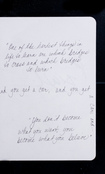 "One of the hardest things in
life to learn are which bridges
to cross and which bridges
to burn."
you get a
and you get
"You don't become
what you want, you
become what you believe."